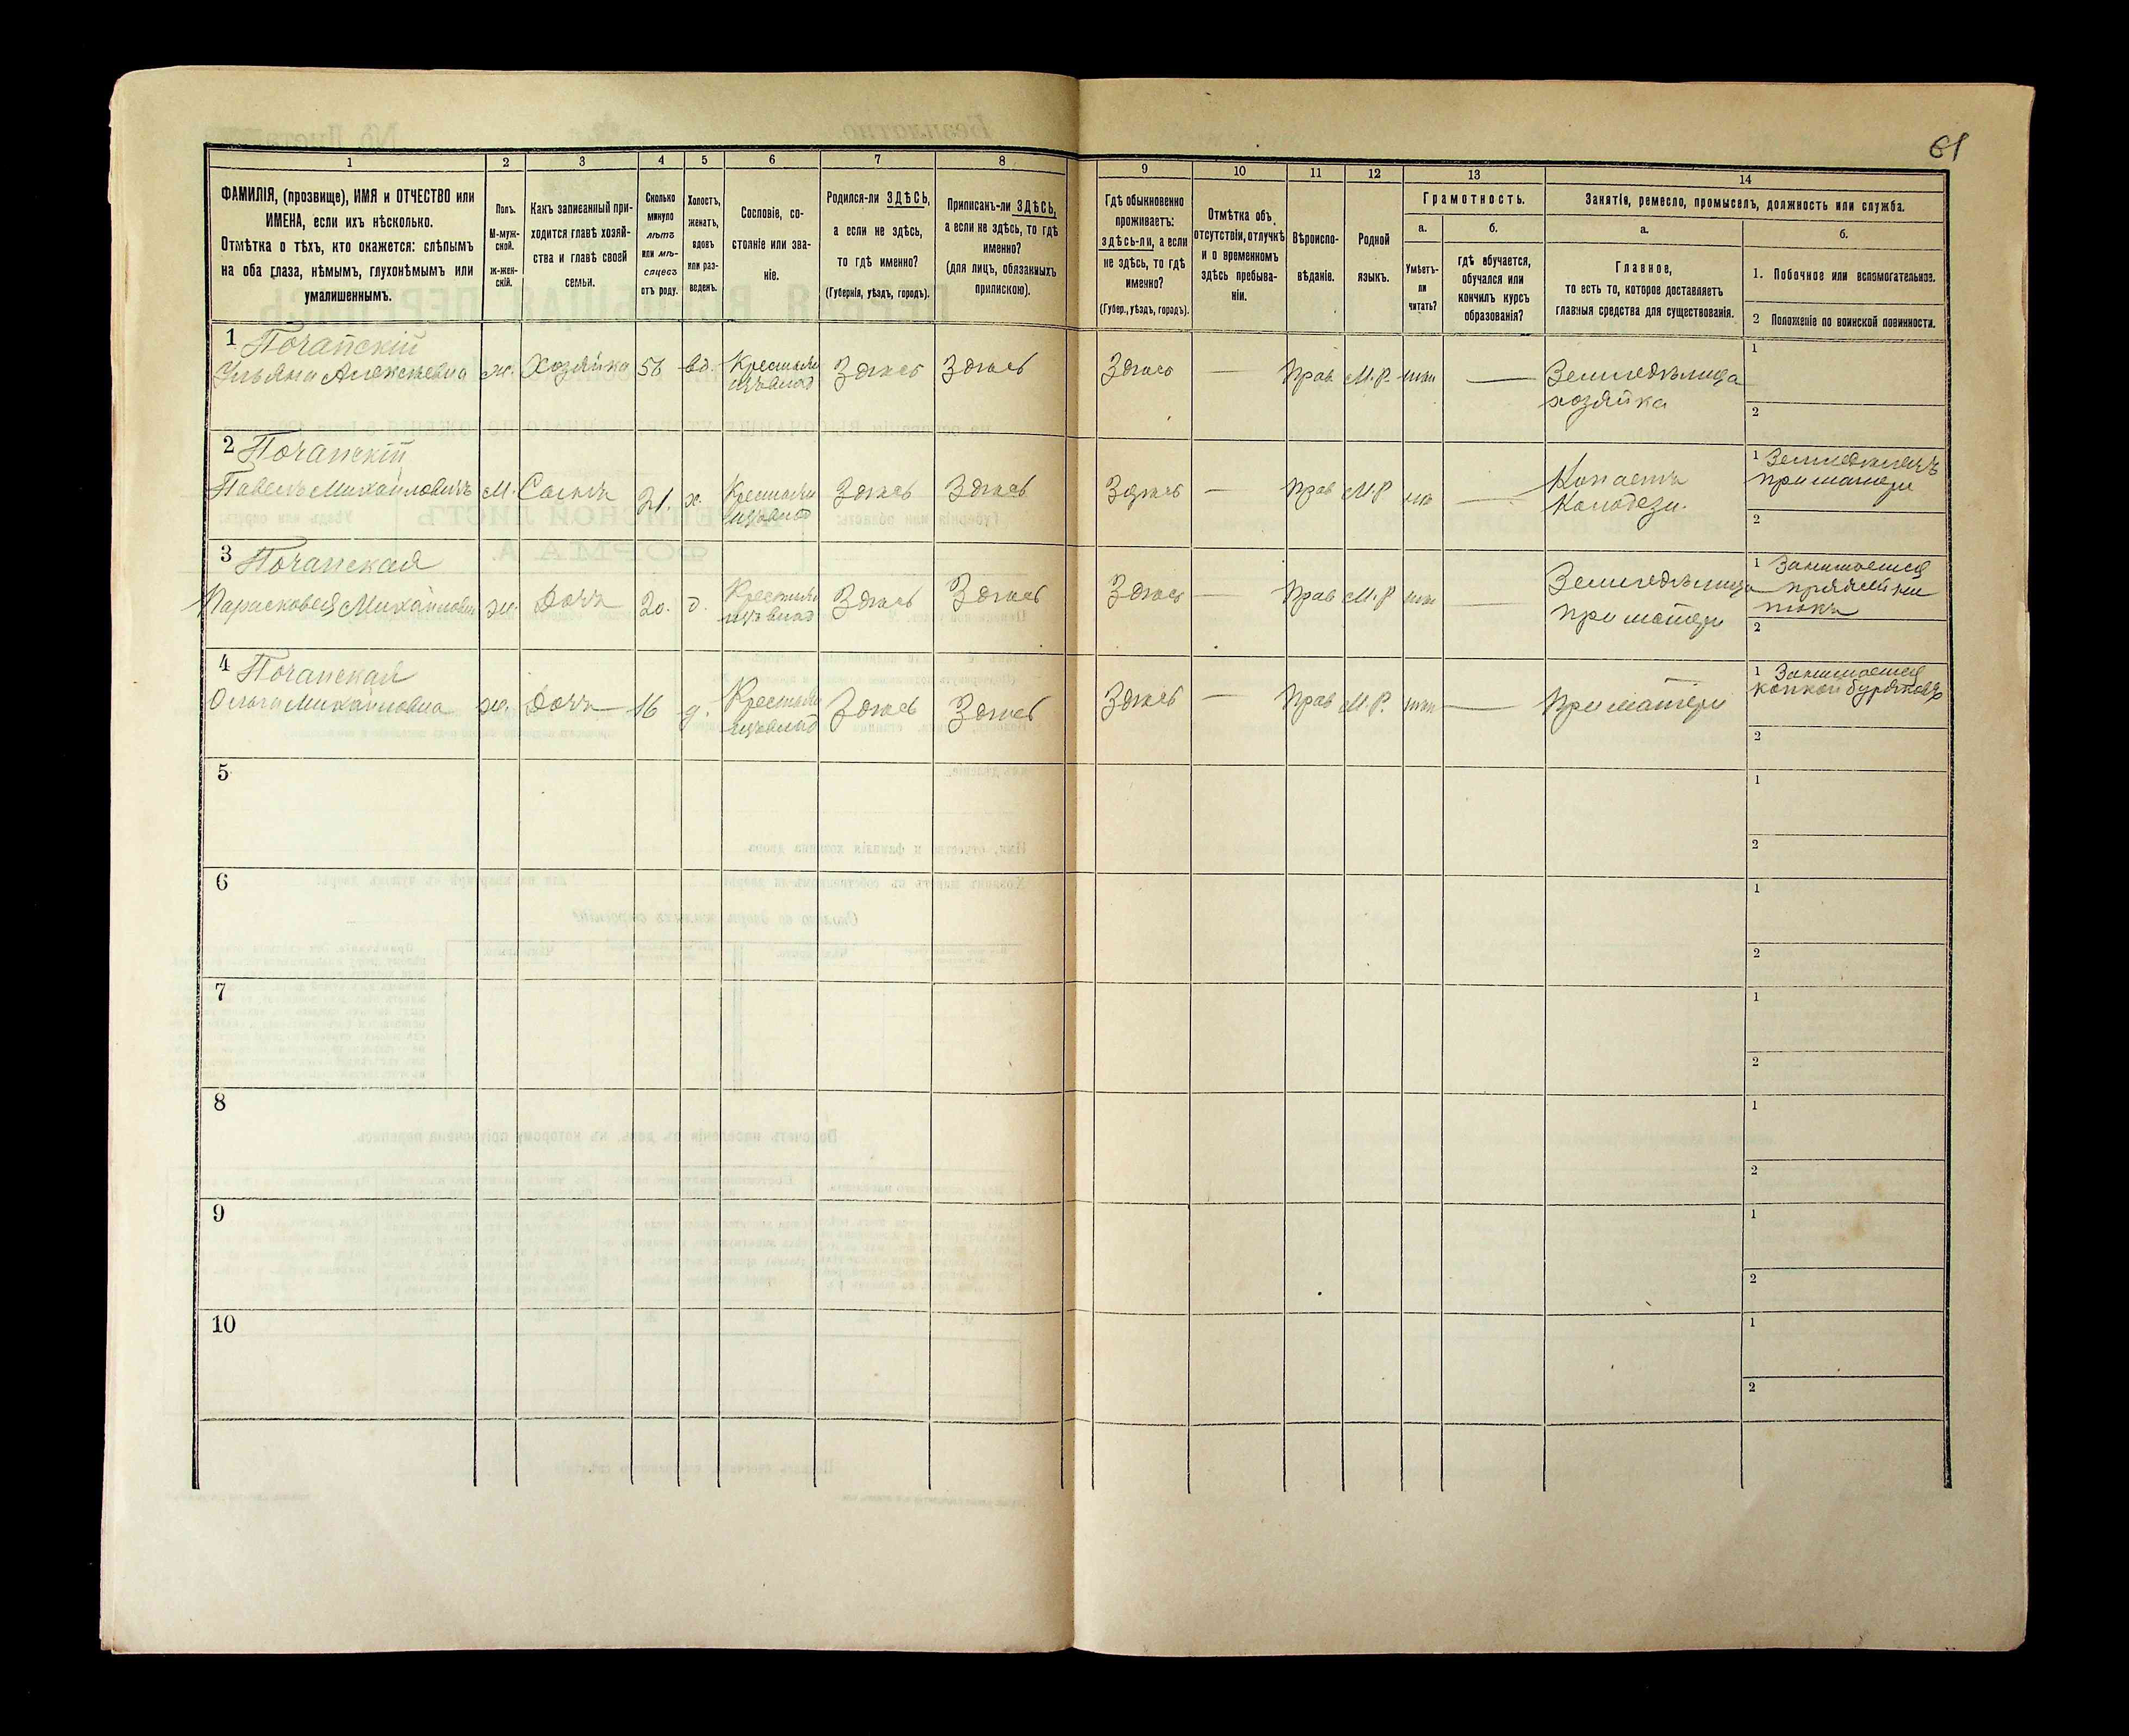 61
1 2 3 4 5 6 7 8 9 10 11 12 13 14
ФАМИЛІЯ, (прозвище), ИМЯ и ОТЧЕСТВО или
ИМЕНА, если ихъ нѣсколько.
Отмѣтка о тѣхъ, кто окажется: слѣпымъ
на оба глаза, нѣмымъ, глухонѣмымъ или
умалишеннымъ.
Полъ.
М-муж-
ской.
ж-жен-
скій.
Какъ записанный при-
ходится главѣ хозяй-
ства и главѣ своей
семьи.
Сколько
минуло
лѣтъ
или мѣ-
сяцевъ
отъ роду.
Холостъ,
женатъ,
вдовъ
или раз-
веденъ.
Сословіе, со-
стояніе или зва-
ніе.
Родился-ли ЗДѢСЬ,
а если не здѣсь,
то гдѣ именно?
(Губернія, уѣздъ, городъ).
Приписанъ-ли ЗДѢСЬ,
а если не здѣсь, то гдѣ
именно?
(для лицъ, обязанныхъ
припискою).
Гдѣ обыкновенно
проживаетъ:
здѣсь-ли, а если
не здѣсь, то гдѣ
именно?
(Губер., уѣздъ, городъ).
Отмѣтка объ
отсутствіи, отлучкѣ
и о временномъ
здѣсь пребыва-
ніи.
Вѣроиспо-
вѣданіе.
Родной
языкъ.
Грамотность.
а.
Умѣетъ-
ли
читать?
б.
гдѣ обучается,
обучался или
кончилъ курсъ
образованія?
Занятія, ремесло, промыселъ, должность или служба.
а.
Главное,
то есть то, которое доставляетъ
главныя средства для существованія.
б.
1. Побочное или вспомогательное.
2 Положеніе по воинской повинности.
1 Почапскій
Ульяна Алексѣевна ж. Хозяйка 56 вд. Крестьян Здѣсь Здѣсь Здѣсь — Прав. М.Р. — Земледѣлица
хозяйка
1
2
2 Почапскій
Павелъ Михайловичъ М. Сынъ 21. х. Крестьян Здѣсь Здѣсь Здѣсь — Прав М.Р — Копаетъ
Колодези.
1 Земледѣлецъ
при матери
2
3 Почапская
Парасковея Михайловна ж. Дочь 20. д. Крестьян Здѣсь Здѣсь Здѣсь — Прав М.Р — Земледѣлица
при матери
1 Занимается
пряжей
2
4 Почапская
Ольга Михайловна ж. Дочь 16 д. Крестьян Здѣсь Здѣсь Здѣсь — Прав М.Р. — При матери
1 Занимается
копкой буряковъ
2
5
1
2
6
1
2
7
1
2
8
1
2
9
1
2
10
1
2